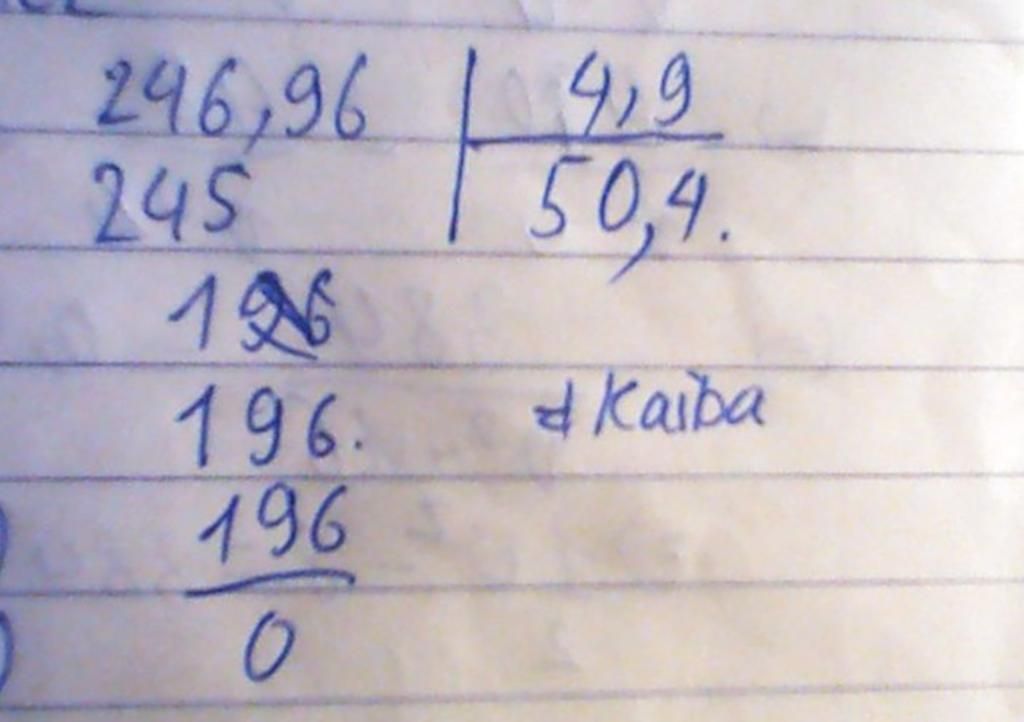 246,96 | 4,9
245 | 50,4.
196
196. d Kaiba
196
0